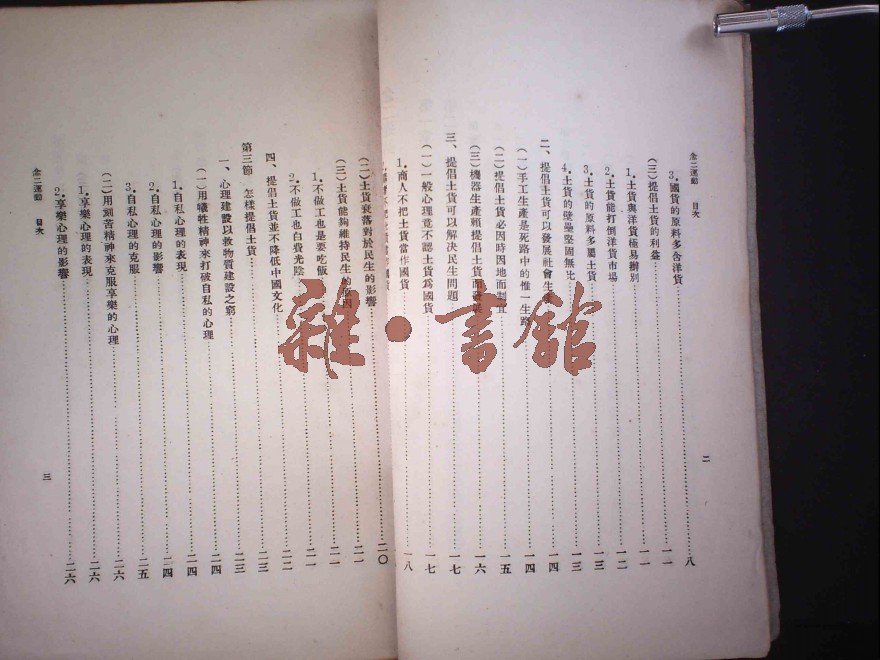 念二運動　目次
3.國貨的原料多含洋貨……八
(三)提倡土貨的利益……一一
1.土貨與洋貨極易辦別……一一
2.土貨能打倒洋貨市場……一二
3.土貨的原料多屬土貨……一三
4.土貨的壁壘堅固無比……一三
二、提倡土貨可以發展社會生產……一四
(一)手工生產是死路中的惟一生路……一四
(二)提倡土貨必因時因地而制宜……一五
(三)機器生產賴提倡土貨而發展……一六
三、提倡土貨可以解決民生問題……一七
(一)一般心理竟不認土貨爲國貨……一七
1.商人不把土貨當作國貨……一八
二
……二〇
(二)土貨衰落對於民生的影響……二一
(三)土貨能夠維持民生的原因……二一
1.不做工也是要吃飯……二一
2.不做工也白費光陰……二二
四、提倡土貨並不降低中國文化……二三
第三節　怎樣提倡土貨……二三
一、心理建設以救物質建設之窮……二四
(一)用犧牲精神來打破自私的心理……二四
1.自私心理的表現……二四
2.自私心理的影響……二四
3.自私心理的克服……二五
(二)用刻苦精神來克服享樂的心理……二六
1.享樂心理的表現……二六
2.享樂心理的影響……二六
念二運動　目次
三
雜•書館